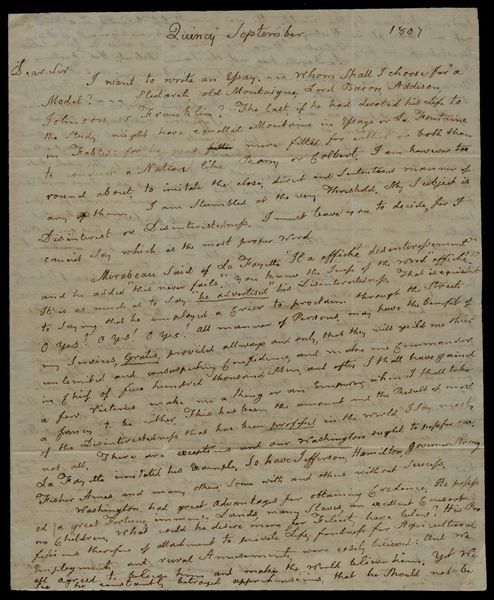 Quincy September 1807
Dear Sir
I want to write an Essay. Whom Shall I choose for a
Model? Plutarch, old Montaigne, Lord Bacon, Addison,
Johnson or Franklin? The last if he had devoted his Life to
the Study might have equalled Montaine in Essays or La Fontaine
in Fables: for he was more fitted for both than
to conduct a Nation like Colbert. I am however too
round about, to imitate the close, direct and Sententious manner of
any of them. I am Stumbled at the very Threshold. My Subject is
Disinterest or Disinterestedness. I must leave you to decide, for I
cannot Say which is the most proper Word.
Mirabeau Said of La Fayette "Il a affiché desinteressement"
and he added "this never fails." You know the Sense of the Word "affiché"
It is as much as to Say "he advertised" his Disinterestedness. That is equivalent
to Saying that he employed a Crier to proclaim through the Streets
O Yes! O Yes! O Yes! All manner of Persons, may have the benefit of
my Services, Gratis, provided allways and only, that they will yeild me their
unlimited and unsuspecting Confidence, and make me Commander
in Chief of five hundred thousand Men, and after I shall have gained
a few Victories make me a King or an Emperor, when I shall take
a fancy to be either. This has been the amount and the Result of most
of the Disinterestedness that has been professed in the World. I Say most,
not all. There are exceptions and our Washington ought to pass for one.
La Fayette imitated his Example, So have Jefferson, Hamilton, Governor Strong
Fisher Ames and many others, Some with and others without Success.
Washington had great Advantages for obtaining Credence. He possess
ed a great Fortune, immense Lands, many Slaves, an excellent Consort
no Children. What could he desire more for Felicity here below? His Pro
fessions therefore of attachment to private Life, fondness for Agricultural
Employments and rural Amusements were easily believed: and We
all agreed to believe him and make the World believe him. Yet We
See he constantly betrayed apprehensions, that he should not be